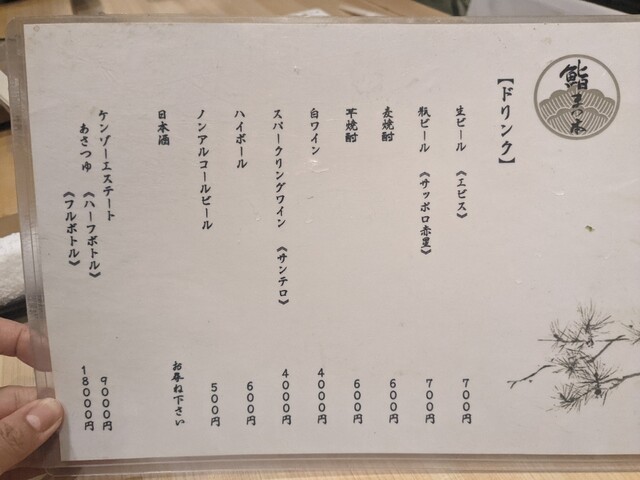 鮨 まつ本
【ドリンク】
生ビール 《エビス》 700円
瓶ビール 《サッポロ赤星》 700円
麦焼酎 600円
芋焼酎 600円
白ワイン 4000円
スパークリングワイン 《サンテロ》 4000円
ハイボール 600円
ノンアルコールビール 500円
日本酒 お尋ね下さい
ケンゾーエステート
あさつゆ 《ハーフボトル》 9000円
《フルボトル》 18000円